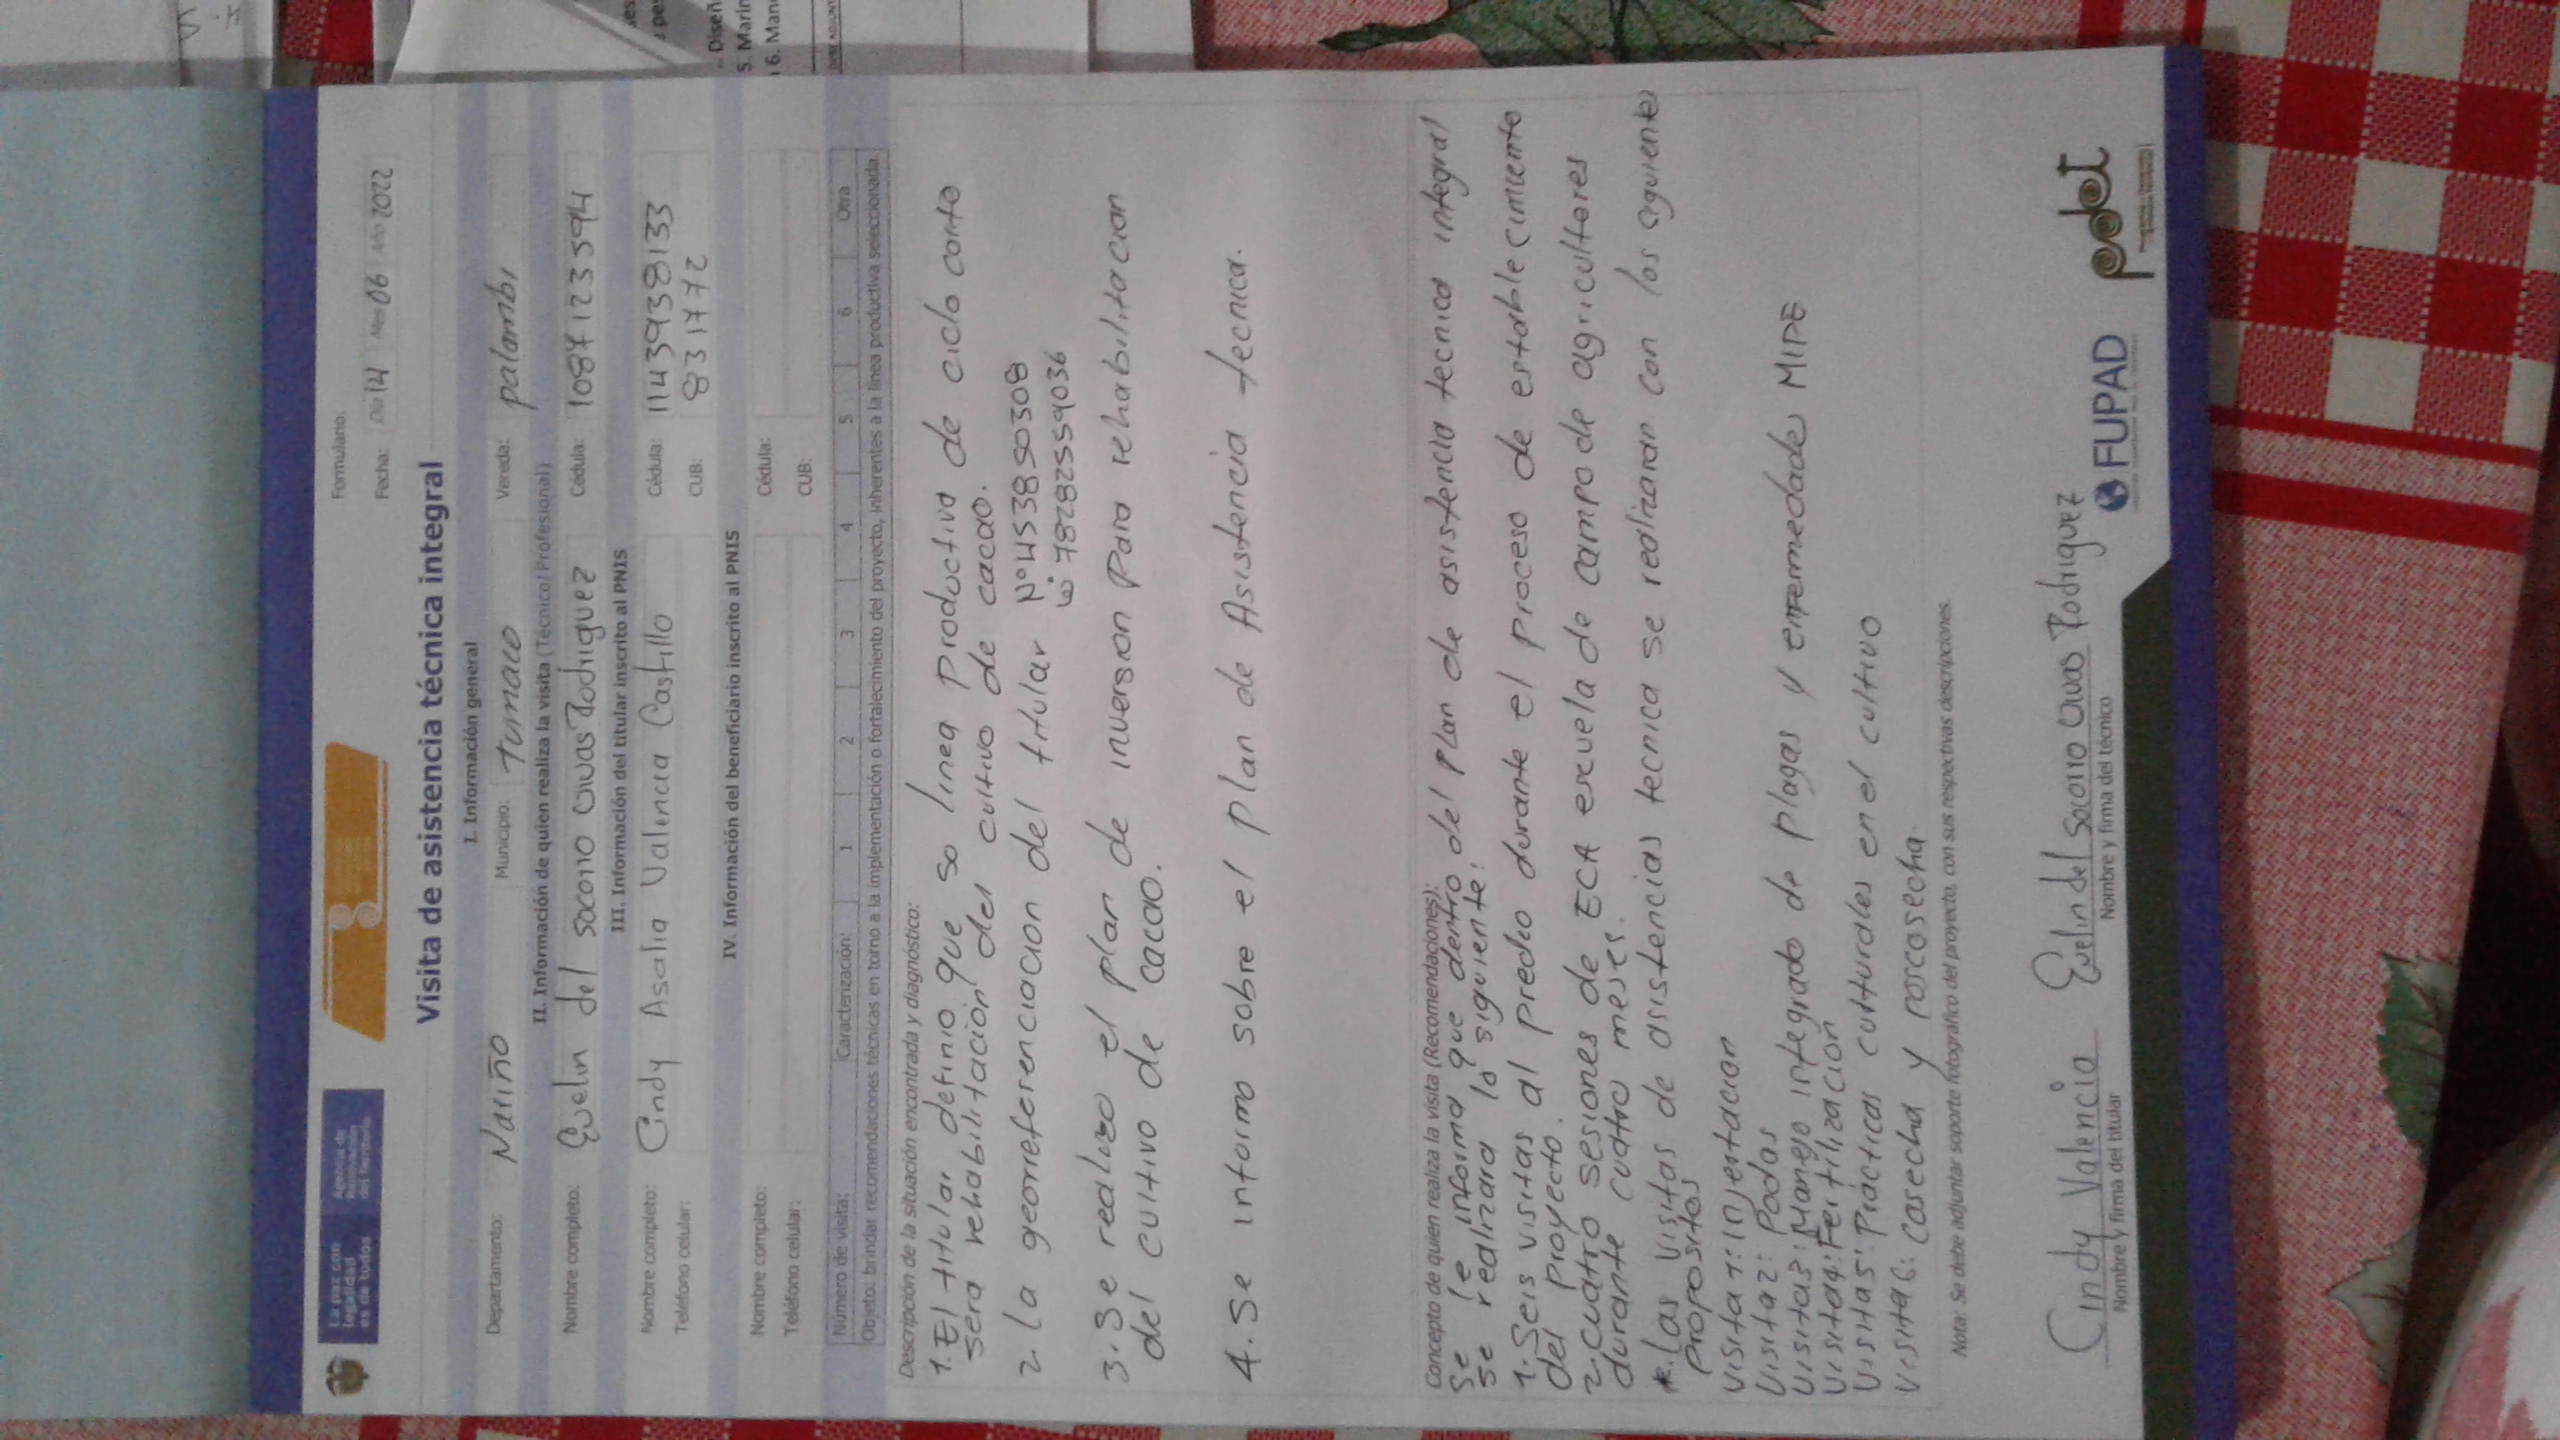 La paz con
legalidad
es de todos
Agencia de
Renovación
del Territorio
Formulario:
Fecha: Día 14 Mes 06 Año 2022
Visita de asistencia técnica integral
I. Información general
Departamento: Nariño Municipio: Tumaco Vereda: palambi
II. Información de quien realiza la visita (Técnico/ Profesional)
Nombre completo: Evelin del socorro Cuvas Rodriguez Cédula: 1087123594
III. Información del titular inscrito al PNIS
Nombre completo: Cindy Asalia Valencia Castillo Cédula: 1143938133
Teléfono celular: CUB: 831772
IV. Información del beneficiario inscrito al PNIS
Nombre completo: Cédula:
Teléfono celular: CUB:
Número de visita: Caracterización: 1 2 3 4 5 6 Otra
Objeto: brindar recomendaciones técnicas en torno a la implementación o fortalecimiento del proyecto, inherentes a la línea productiva seleccionada.
Descripción de la situación encontrada y diagnóstico:
1. El titular definio que so linea productiva de ciclo corto
sera rehabilitación del cultivo de cacao.
2. la georreferenciacion del titular N° 453850308
W° 78282559036
3. Se realizo el plan de inversion Para rehabilitacion
del cultivo de cacao.
4. Se informo sobre el plan de Asistencia tecnica.
Concepto de quien realiza la visita (Recomendaciones):
Se le informa que dentro del plan de asistencia tecnica integral
se realizara lo siguiente:
1. Seis visitas al predio durante el proceso de establecimiento
del proyecto.
2. cuatro sesiones de ECA escuela de campo de agricultores
durante cuatro meses.
* Las visitas de asistencias tecnica se realizaran con los siguientes
Propositos
visita 1: injertacion
Visita 2: Podas
Visita 3: Manejo integrado de plagas y enfermedades MIPE
Visita 4: Fertilización
Visita 5: Practicas culturales en el cultivo
Visita 6: Cosecha y poscosecha.
Nota: Se debe adjuntar soporte fotográfico del proyecto, con sus respectivas descripciones.
Cindy Valencia Evelin del Socorro Cuvas Rodriguez
Nombre y firma del titular Nombre y firma del técnico
FUPAD
pdet